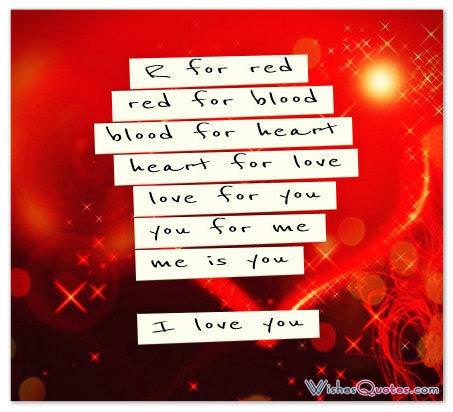 R for red
red for blood
blood for heart
heart for love
love for you
you for me
me is you
I love you
WishesQuotes.com